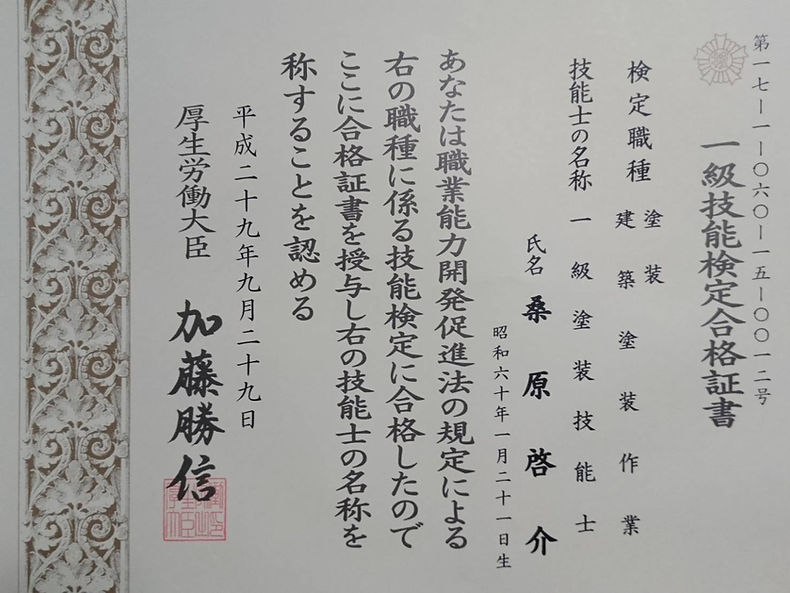 第一七―一―〇六〇―一五―〇〇一二号
一級技能検定合格証書
検定職種 塗装
建築塗装作業
技能士の名称 一級塗装技能士
氏名 桑原啓介
昭和六十年一月二十一日生
あなたは職業能力開発促進法の規定による
右の職種に係る技能検定に合格したので
ここに合格証書を授与し右の技能士の名称を
称することを認める
平成二十九年九月二十九日
厚生労働大臣 加藤勝信